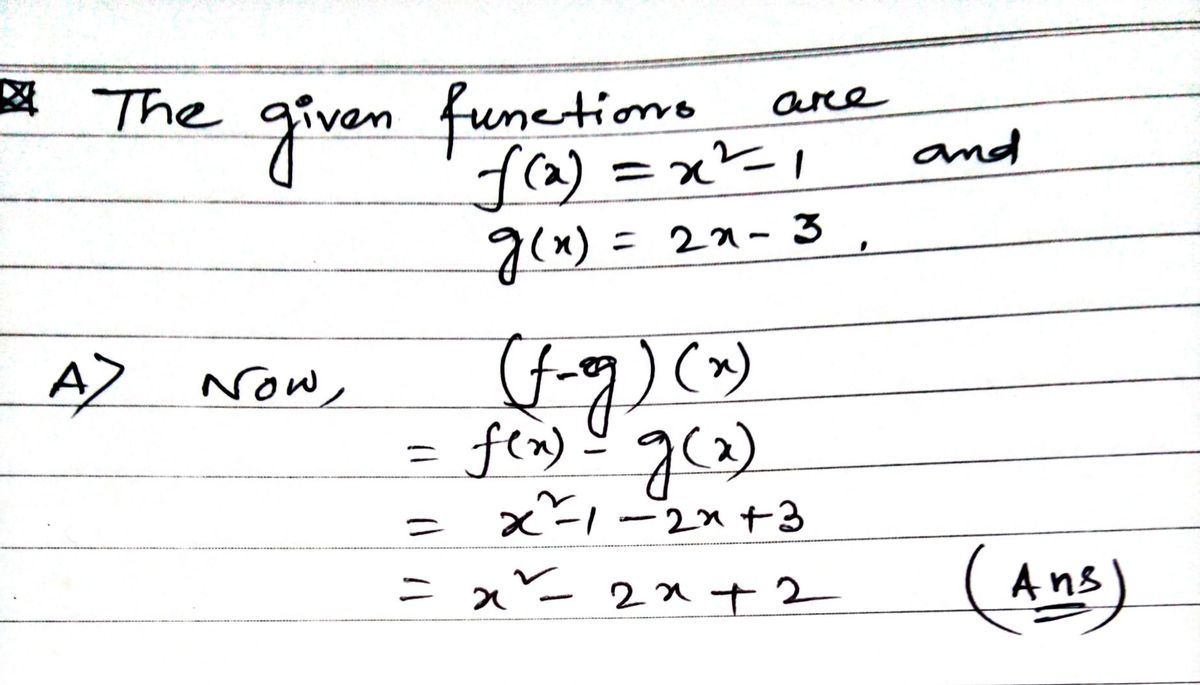 The given functions are
f(x) = x² - 1 and
g(x) = 2x - 3 ,
A> Now, (f-g)(x)
= f(x) - g(x)
= x² - 1 - 2x + 3
= x² - 2x + 2 (Ans)